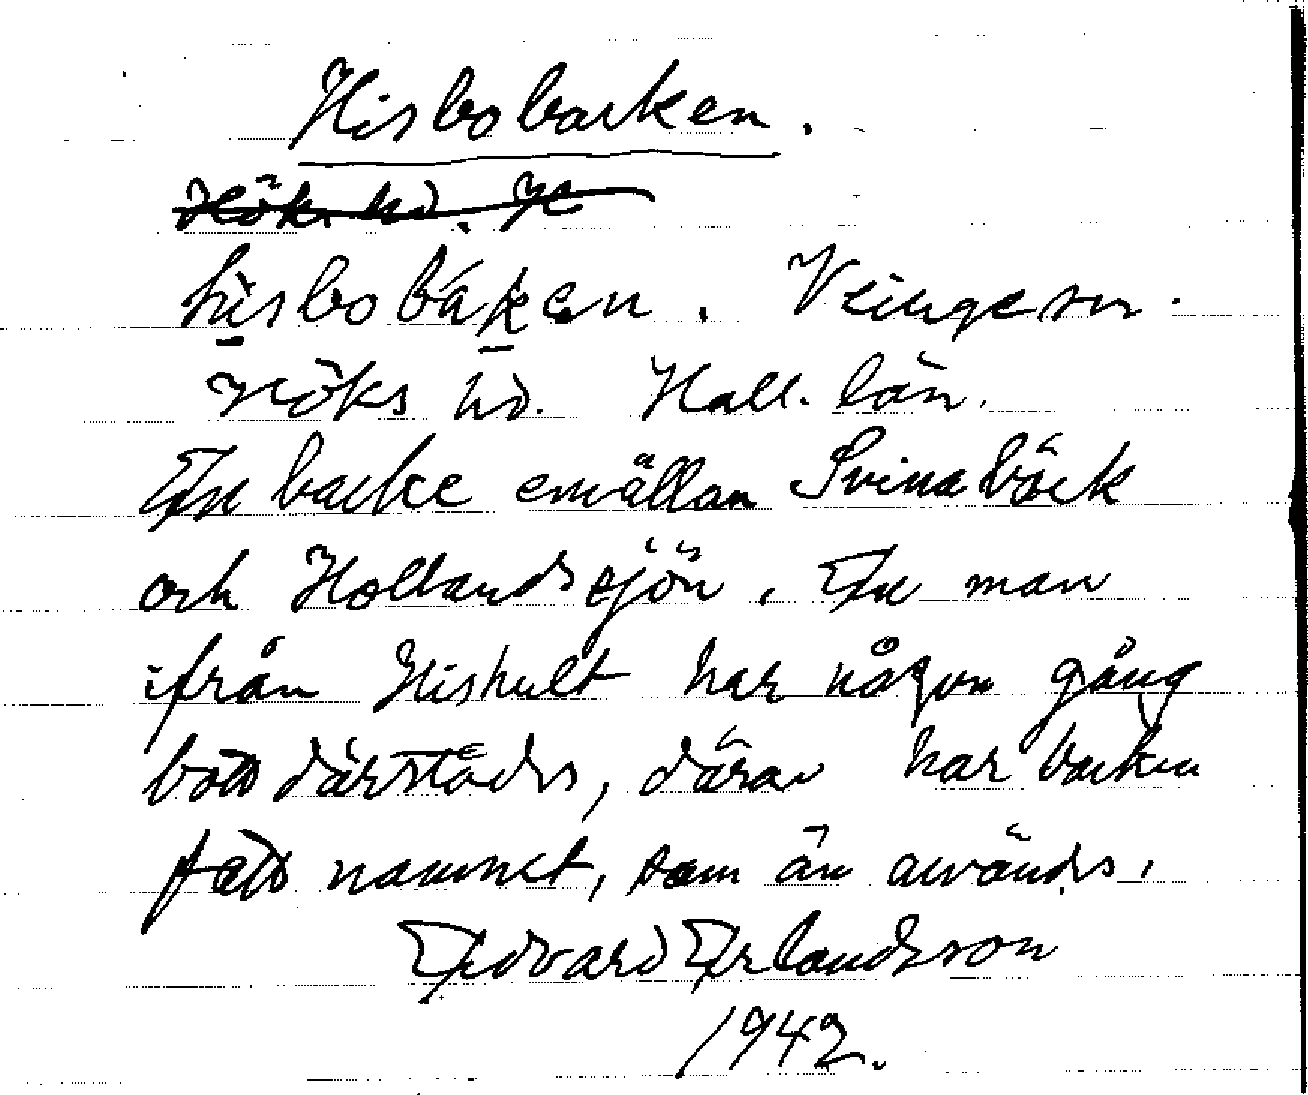 Hisbobacken.
Höks hd. H
hisbobáken. Veinge sn.
Höks hd. Hall. län.
En backe emällan Svinabäck
och Hollandssjön. En man
ifrån Hishult har någon gång
bott därstädes, därav har backen
fått namnet, som än användes.
Edvard Erlandsson
1942.